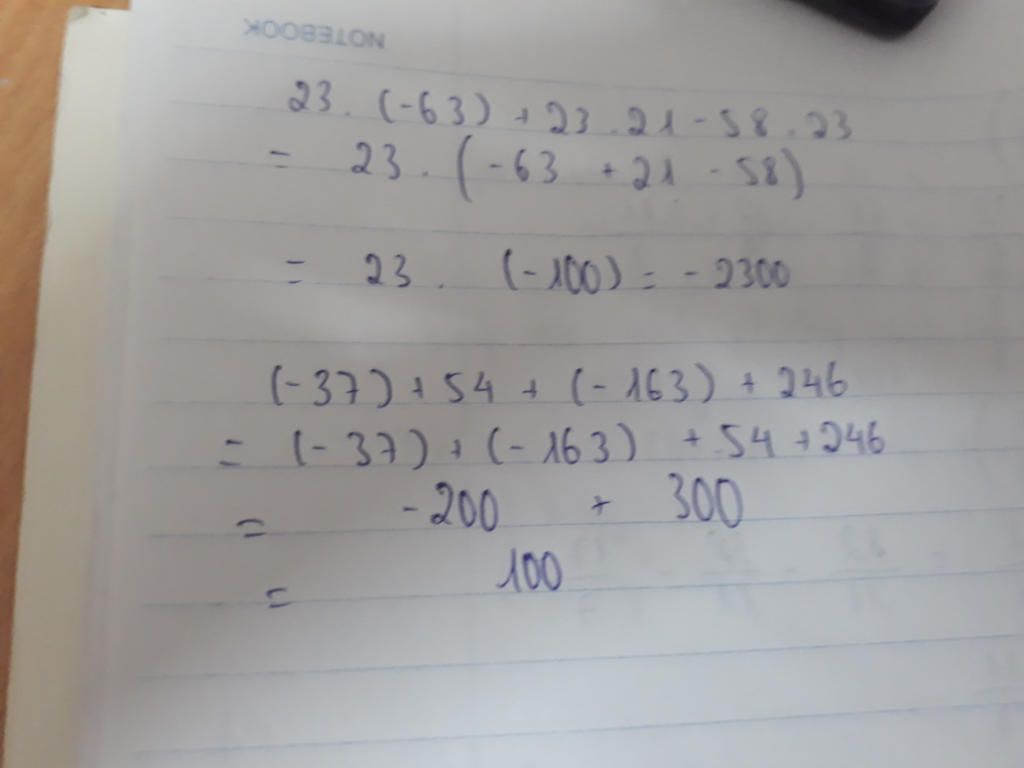 NOTEBOOK
23. (-63) + 23 . 21 - 58 . 23
= 23 . (-63 + 21 - 58)
= 23 . (-100) = - 2300
(-37) + 54 + (-163) + 246
= (-37) + (-163) + 54 + 246
= -200 + 300
= 100